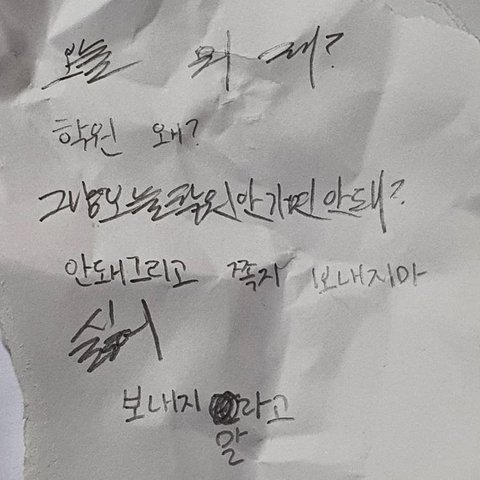 오늘 뭐 해?
학원 왜?
그냥 오늘 학원 안 가면 안돼?
안돼 그리고 쪽지 보내지마
싫어
보내지 말라고